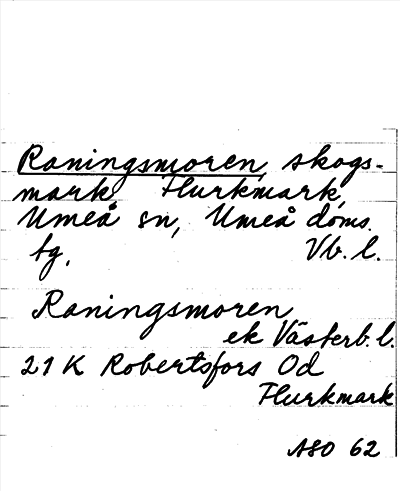 Raningsmoren, skogs-
mark, Flurkmark,
Umeå sn, Umeå doms.
tg, Vb. l.
Raningsmoren
ek Västerb. l.
21 K Robertsfors Od
Flurkmark
ASO 62